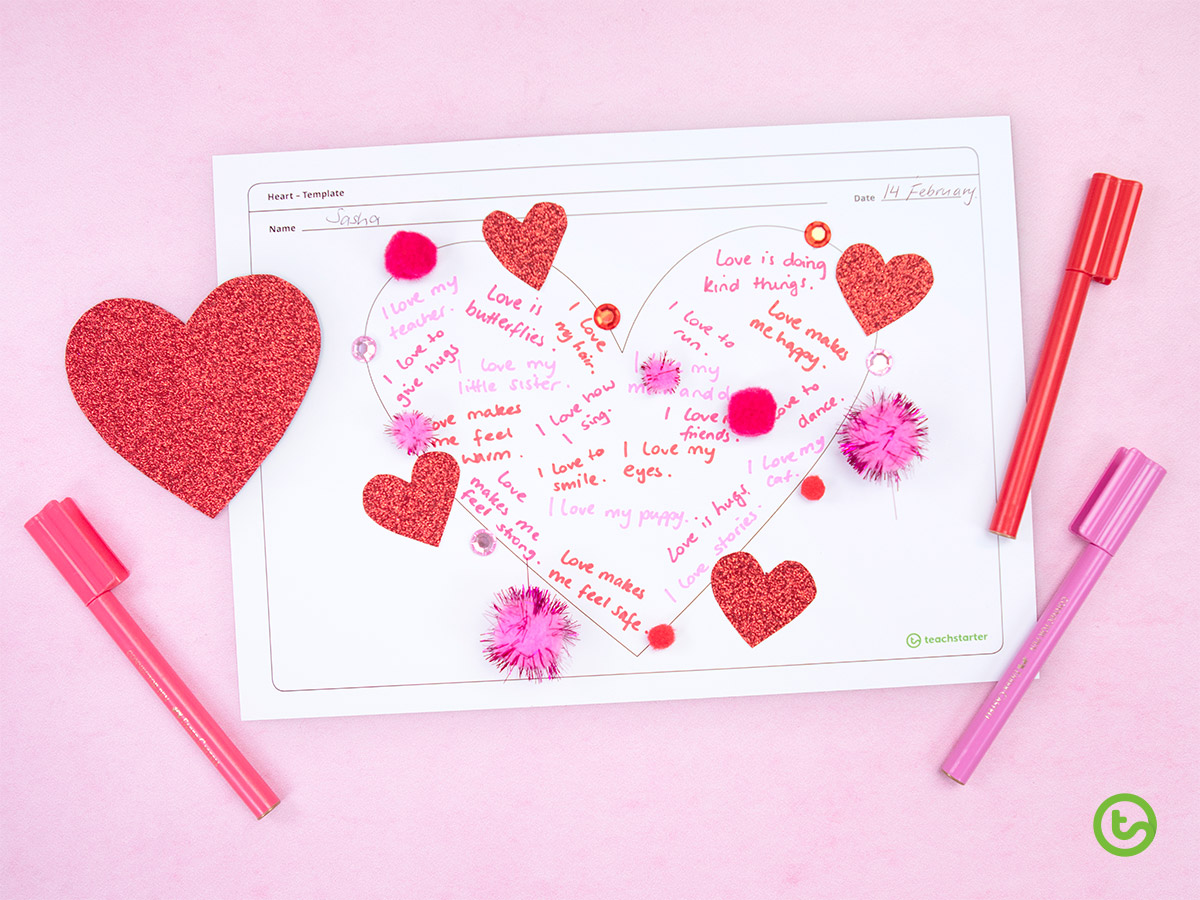 Heart – Template
Name Sasha
Date 14 February.
I love my
teacher.
Love is
butterflies.
I love
my hair.
Love is doing
kind things.
I love to
run.
Love makes
me happy.
I love to
give hugs
I love my
little sister.
I love how
I sing.
my
I love
friends.
love to
dance.
love makes
me feel
warm.
I love to
smile.
I love my
eyes.
I love my
cat.
Love
makes me
feel strong.
I love my puppy.
Love is hugs.
I love stories.
Love makes
me feel safe.
teachstarter